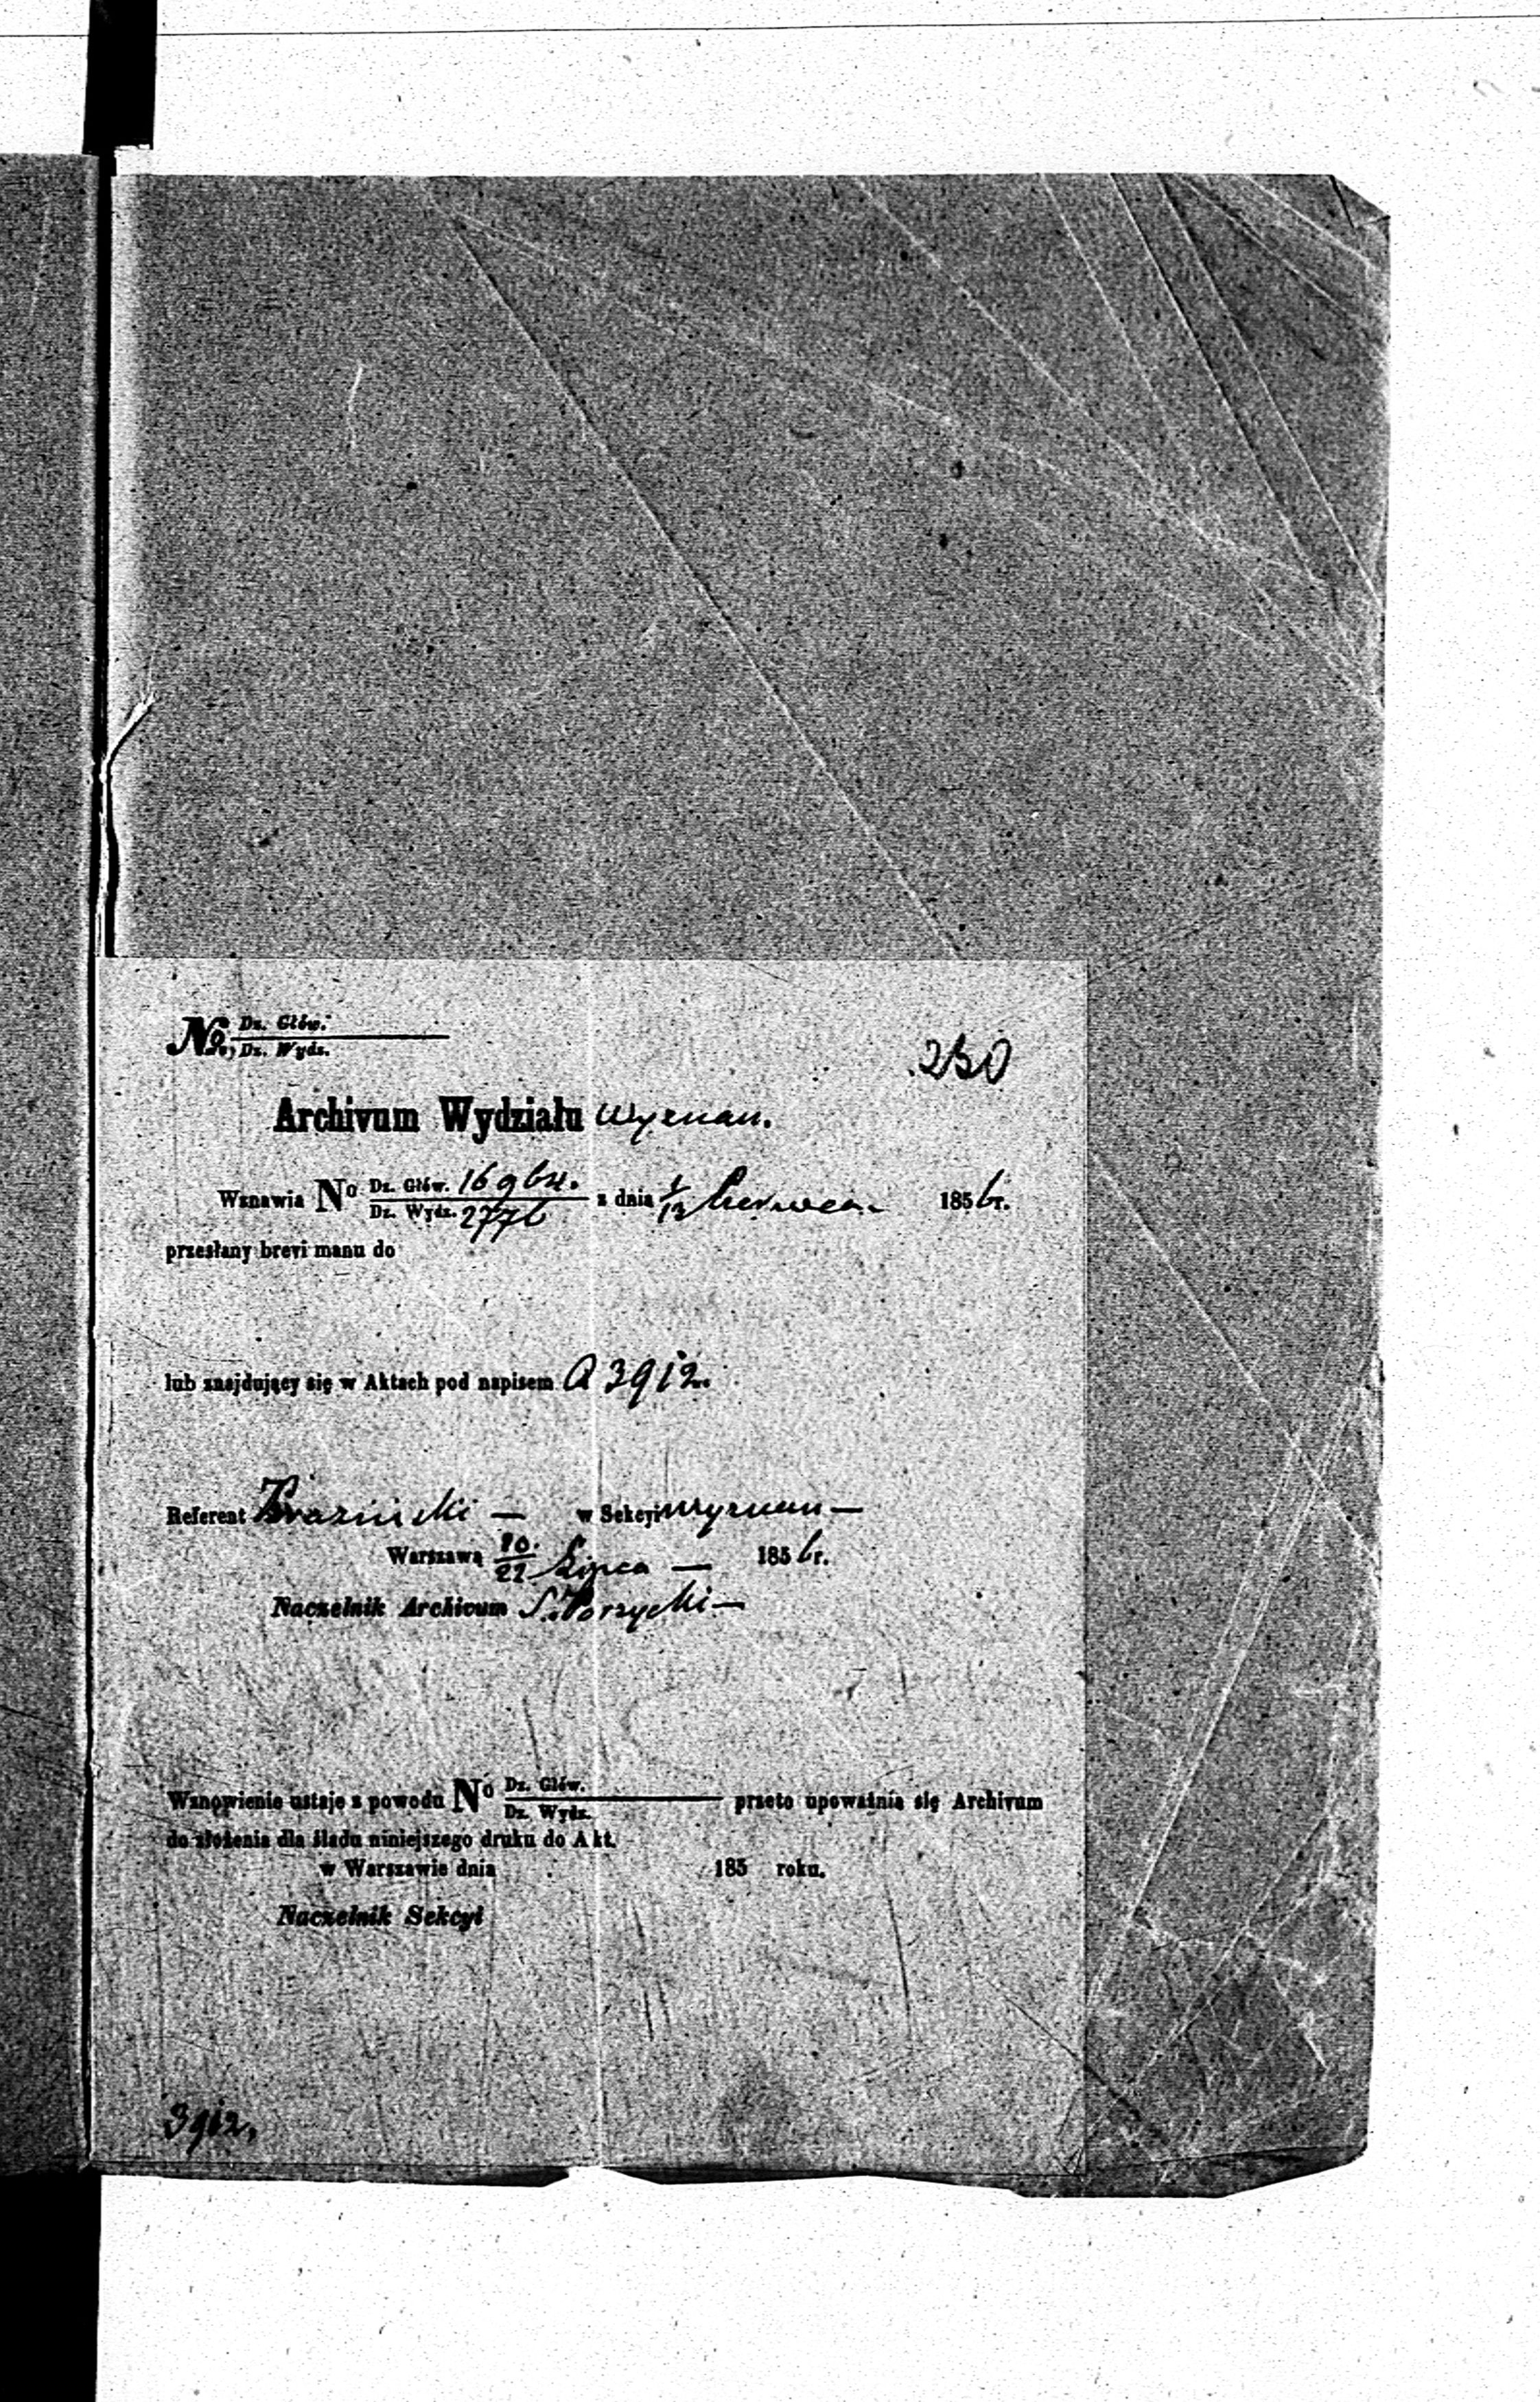 No, Dz. Głów. / Dz. Wydz.
250
Archivum Wydziału Wyznań.
Wznawia No Dz. Głów. / Dz. Wydz. 2776 z dnia 1/13 Czerwca 1856 r.
przesłany brevi manu do
lub znajdujący się w Aktach pod napisem A 3912.
Referent w Sekcyi Wyznań —
Warszawa 10/22 Lipca — 1856 r.
Naczelnik Archivum
Wznowienie ustaje z powodu No Dz. Głów. / Dz. Wydz. przeto upoważnia się Archivum
do złożenia dla śladu niniejszego druku do Akt.
w Warszawie dnia 185 roku.
Naczelnik Sekcyi
3912.